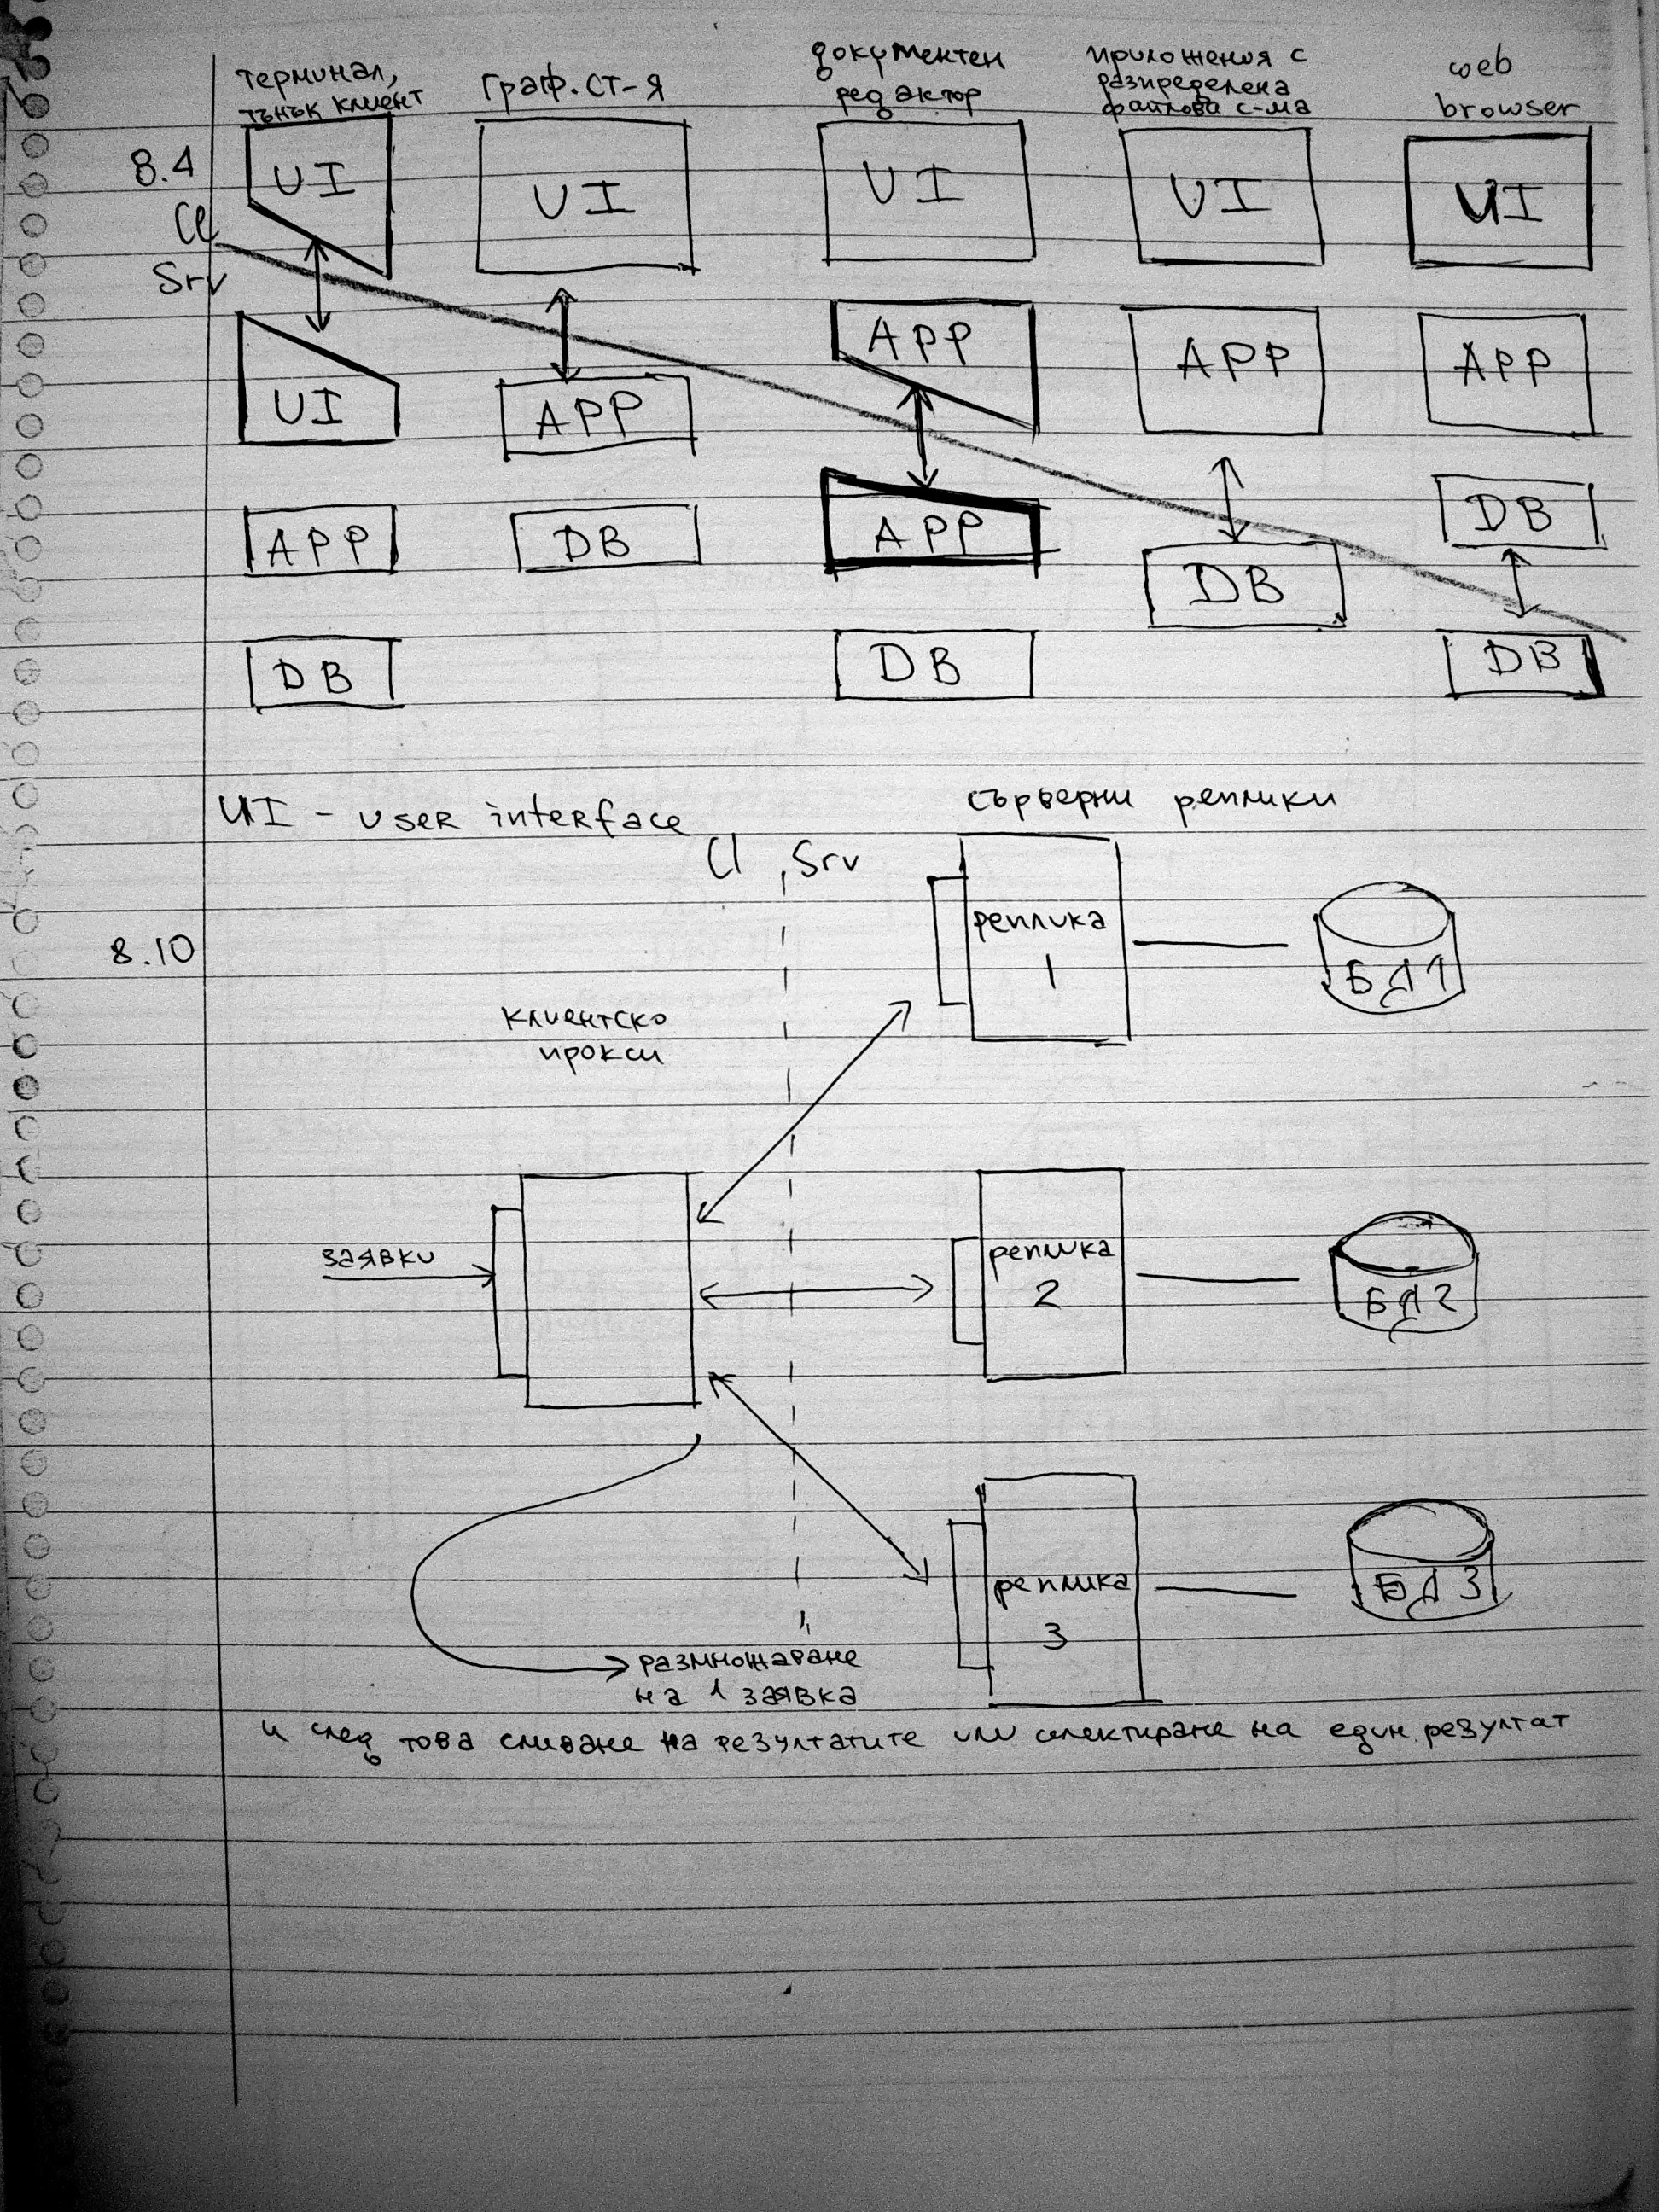 терминал,
тънък клиент
граф. ст-я
документен
редактор
приложения с
разпределена
файлова с-ма
web
browser
8.4
UI
UI
UI
UI
UI
Cl
Srv
UI
APP
APP
APP
APP
APP
DB
APP
DB
DB
DB
DB
DB
UI - user interface
сървърни реплики
Cl Srv
8.10
реплика
1
БД1
клиентско
прокси
заявки
реплика
2
БД2
реплика
3
БД3
размножаване
на 1 заявка
и след това сливане на резултатите или селектиране на един резултат